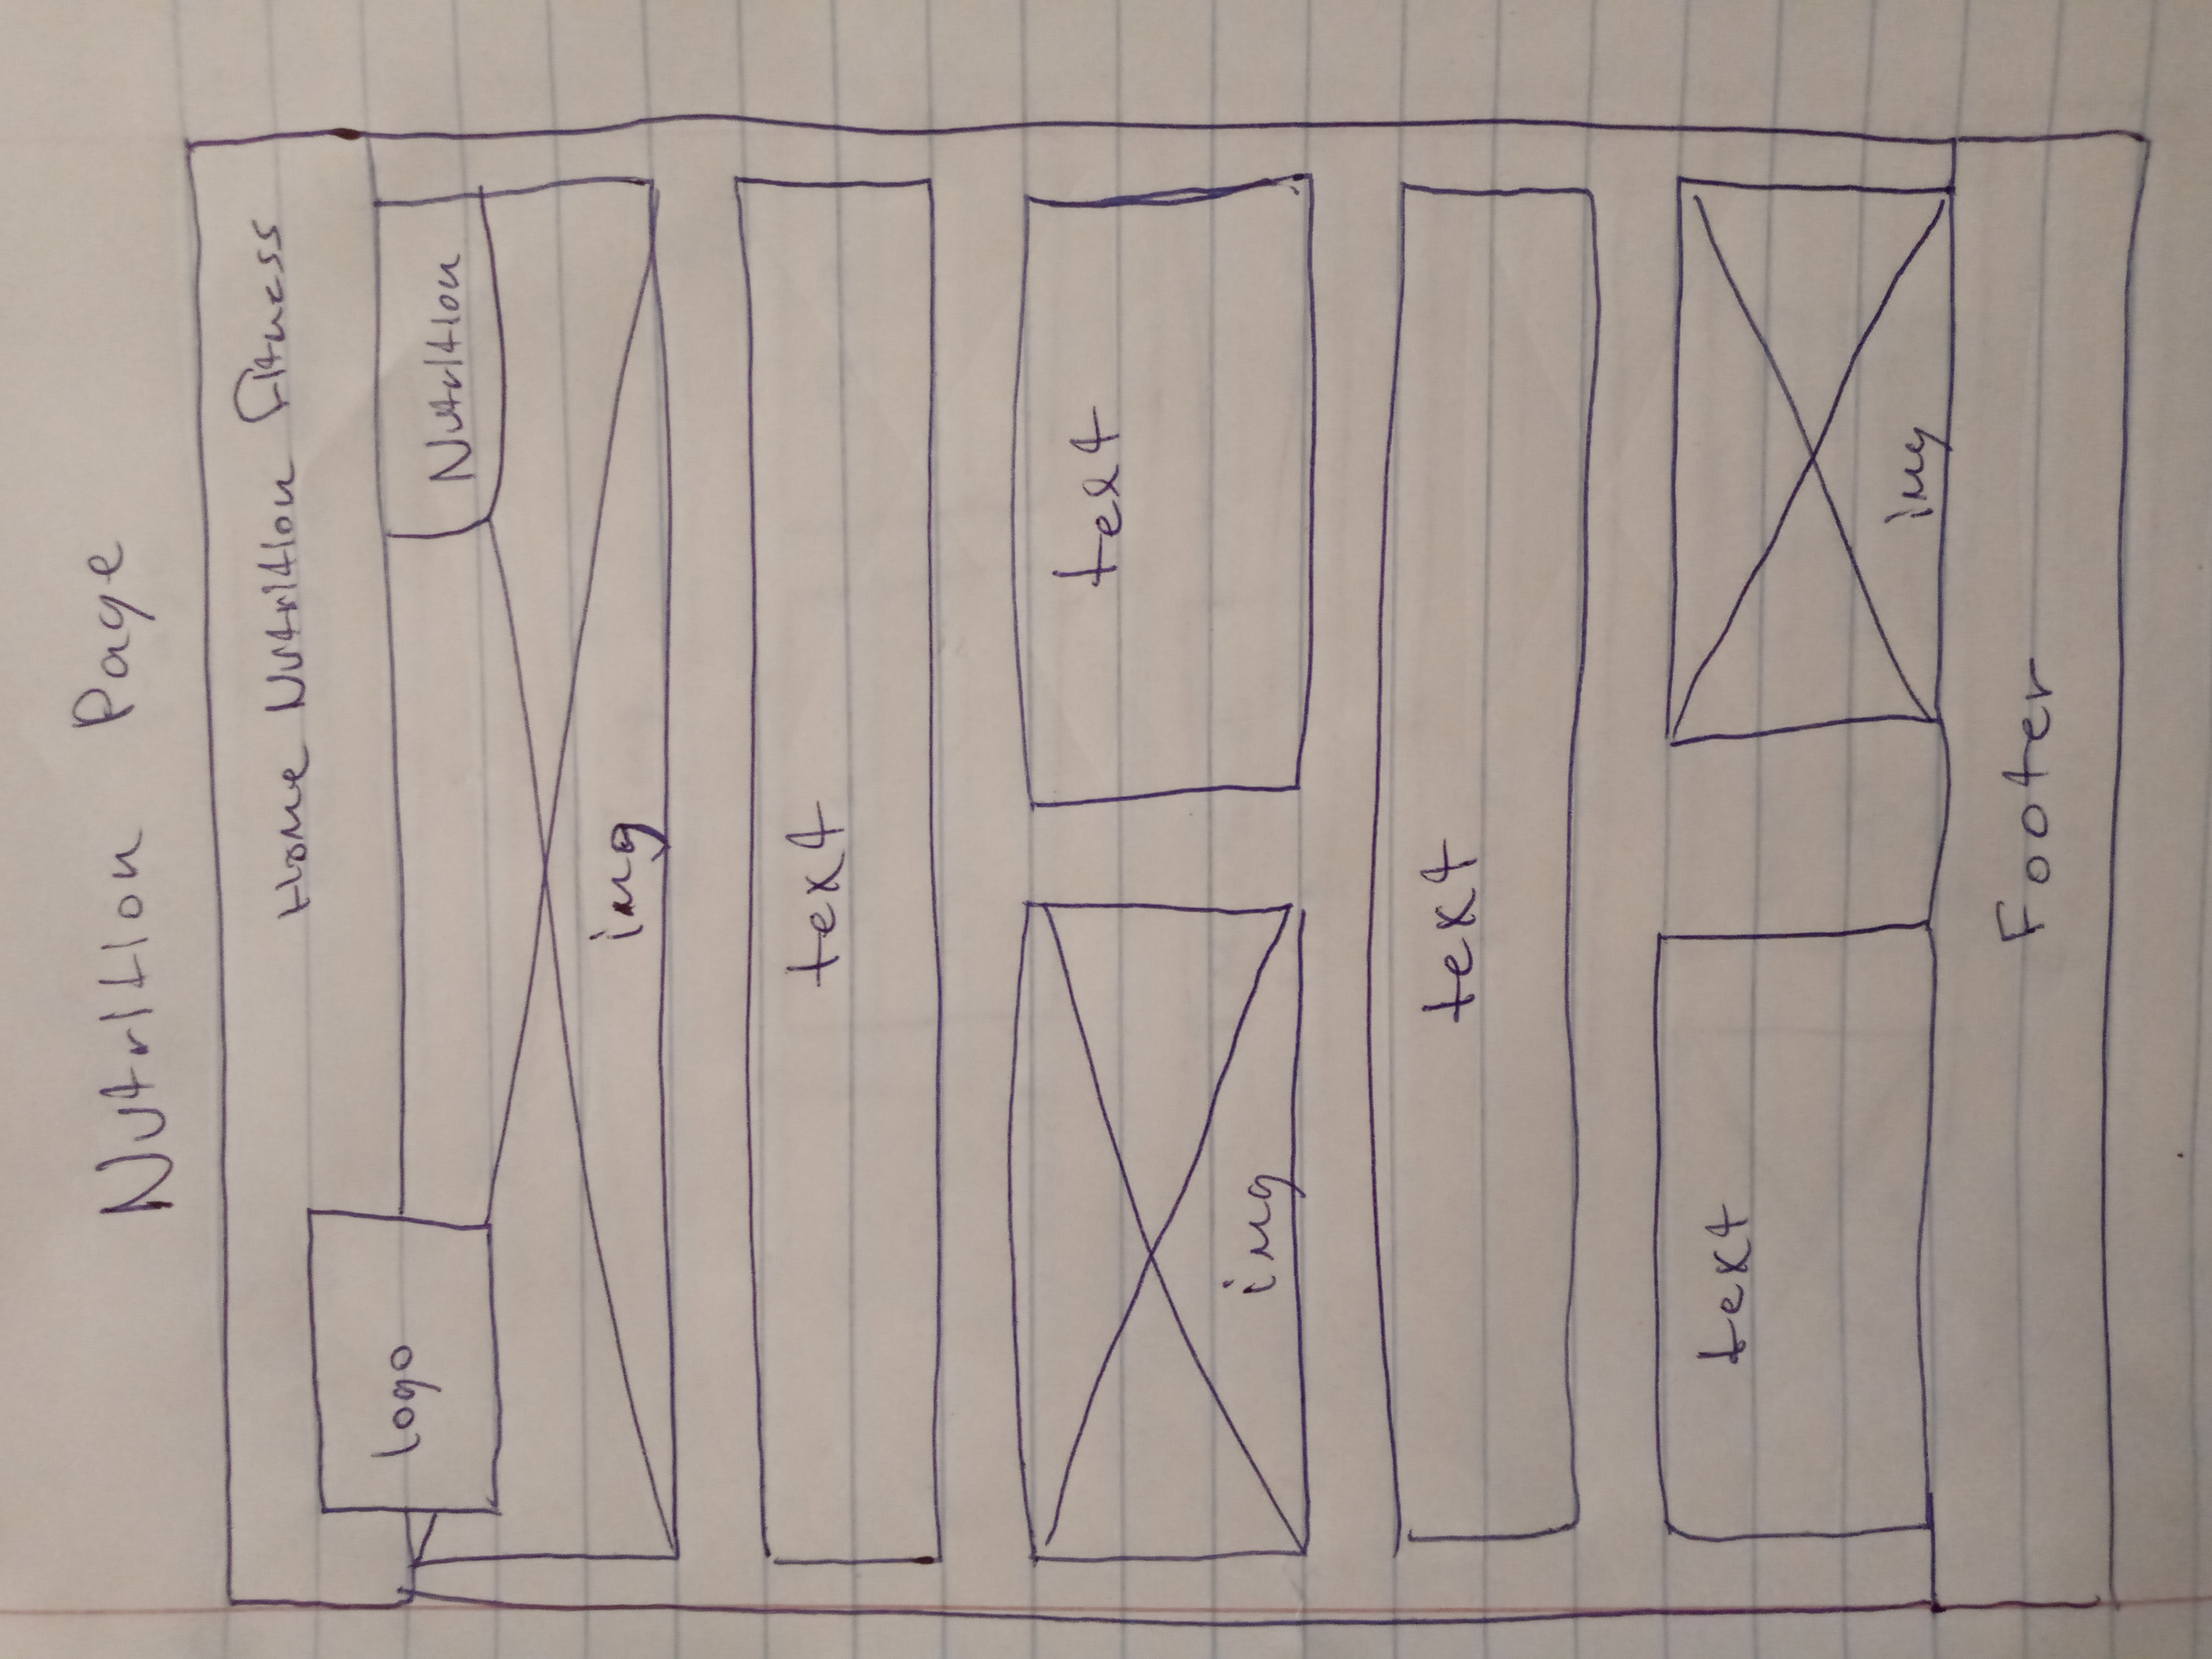 Nutrition Page
Home Nutrition Fitness
logo
Nutrition
img
text
text
img
text
text
img
Footer